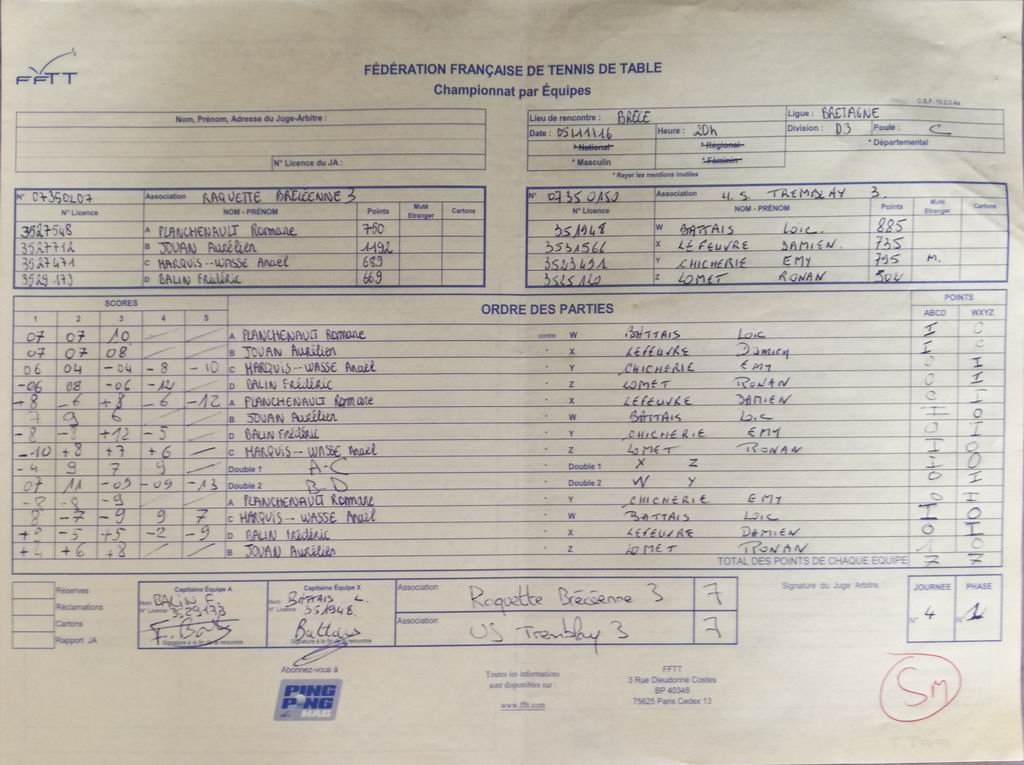 FFTT
FÉDÉRATION FRANÇAISE DE TENNIS DE TABLE
Championnat par Équipes
Nom, Prénom, Adresse du Juge-Arbitre :
N° Licence du JA :
Lieu de rencontre : BRÉCÉ Ligue : BRETAGNE
Date : 05/11/16 Heure : 20h Division : D3 Poule : C
* National * Régional * Départemental
* Masculin * Féminin
* Rayer les mentions inutiles
N° 07350207 Association RAQUETTE BRÉCÉENNE 3
N° Licence NOM - PRÉNOM Points Muté Etranger Cartons
3527548 A PLANCHENAULT Romane 750
3527712 B JOUAN Aurélien 1192
3527471 C MARQUIS--WASSE Anaël 689
3529173 D BALIN Frédéric 669
N° 07350150 Association U.S. TREMBLAY 3.
N° Licence NOM - PRÉNOM Points Muté Etranger Cartons
351948 W BATTAIS LOIC. 885
3531566 X LEFEUVRE DAMIEN. 735
3523491 Y CHICHERIE EMY 795 M.
3525120 Z LOMET RONAN 502
SCORES ORDRE DES PARTIES POINTS
1 2 3 4 5 ABCD WXYZ
07 07 10 A PLANCHENAULT Romane contre W BATTAIS LOIC I 0
07 07 08 B JOUAN Aurélien X LEFEUVRE Damien I 0
06 04 -04 -8 -10 C MARQUIS--WASSE Anaël Y CHICHERIE EMY 0 I
-06 08 -06 -12 D BALIN Frédéric Z LOMET RONAN 0 I
+8 -6 +8 -6 -12 A PLANCHENAULT Romane X LEFEUVRE DAMIEN 0 I
7 9 6 B JOUAN Aurélien W BATTAIS LOIC I 0
-8 -8 +12 -5 D BALIN Frédéric Y CHICHERIE EMY 0 I
-10 +8 +7 +6 C MARQUIS--WASSE Anaël Z LOMET RONAN I 0
-4 9 7 9 Double 1 A-C Double 1 X Z I 0
07 11 -09 -09 -13 Double 2 B-D Double 2 W Y 0 I
-8 -8 -9 A PLANCHENAULT Romane Y CHICHERIE EMY 0 I
8 -7 -9 9 7 C MARQUIS--WASSE Anaël W BATTAIS LOIC I 0
-5 +5 -2 -9 D BALIN Frédéric X LEFEUVRE DAMIEN 0 I
+4 +6 +8 B JOUAN Aurélien Z LOMET RONAN 1 0
TOTAL DES POINTS DE CHAQUE EQUIPE 7 7
Réserves
Réclamations
Cartons
Rapport JA
Capitaine Équipe A
Nom BALIN F.
N° Licence 3529173
Signature à la fin de la rencontre
Capitaine Équipe X
Nom BATTAIS L.
N° Licence 351948.
Battais
Signature à la fin de la rencontre
Association Raquette Brécéenne 3 7
Association US Tremblay 3 7
Signature du Juge Arbitre
JOURNEE PHASE
N° 4 N° 1
Abonnez-vous à
PING PONG MAG
Toutes les informations
sont disponibles sur :
www.fftt.com
FFTT
3 Rue Dieudonné Costes
BP 40348
75625 Paris Cedex 13
SM